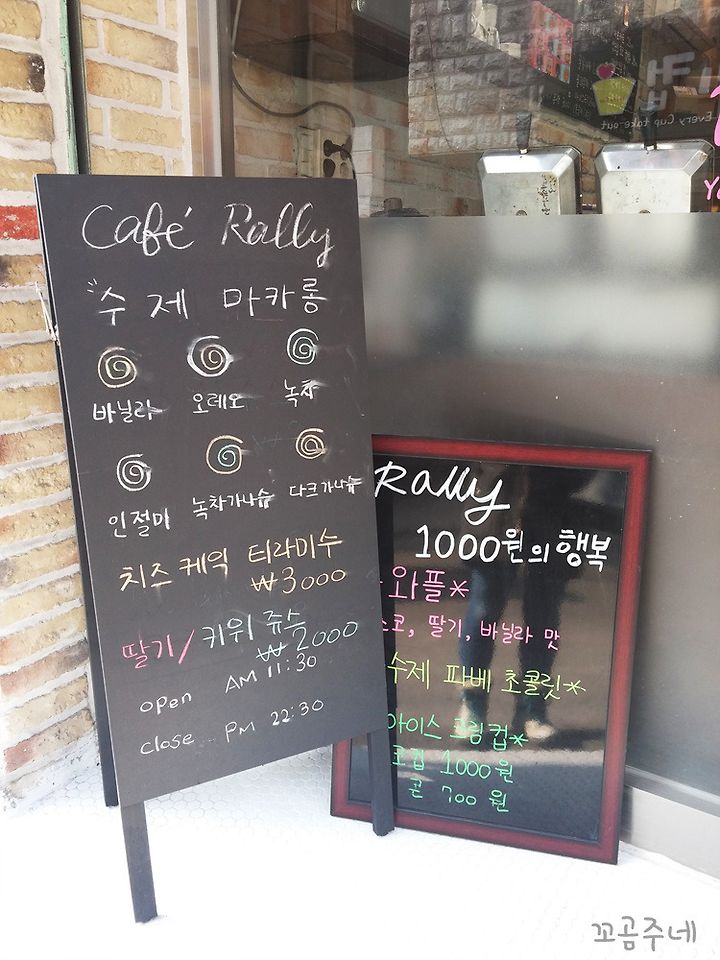 Café Rally
수제 마카롱
바닐라 오레오 녹차
인절미 녹차가나슈 다크가나슈
치즈케익 티라미수
₩3000
딸기/키위 쥬스
₩2000
open AM 11:30
close PM 22:30
Rally
1000원의 행복
와플*
딸기, 바닐라 맛
수제 파베 초콜릿*
아이스크림컵*
컵 1000원
콘 700원
Every Cup take-out
꼬곰주네